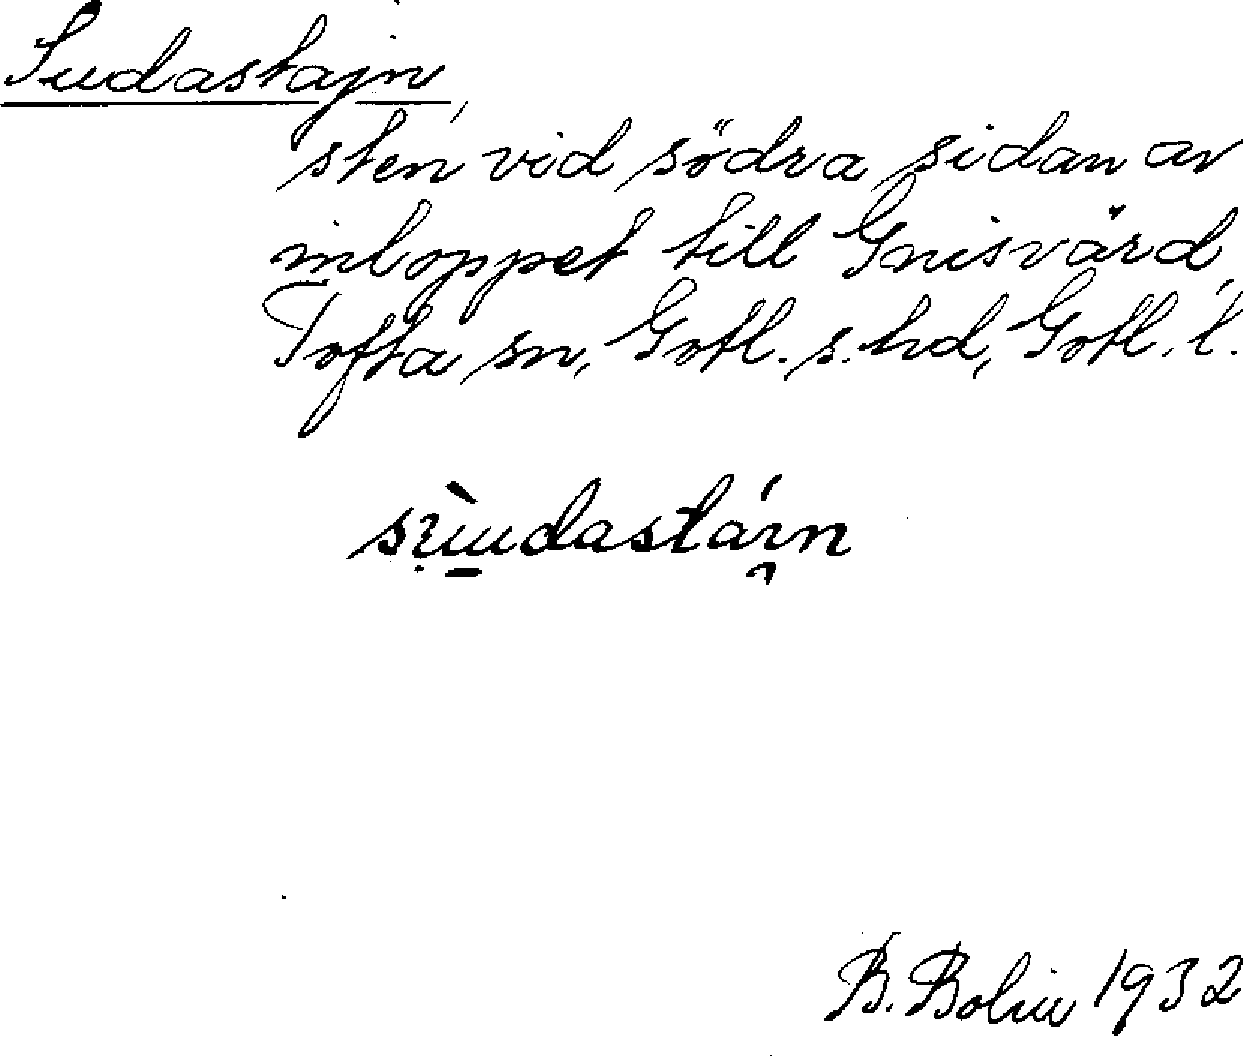 Sudastajn,
sten vid södra sidan av
inloppet till Gnisvärd,
Tofta sn, Gotl. s. hd, Gotl. l.
B. Bolin 1932